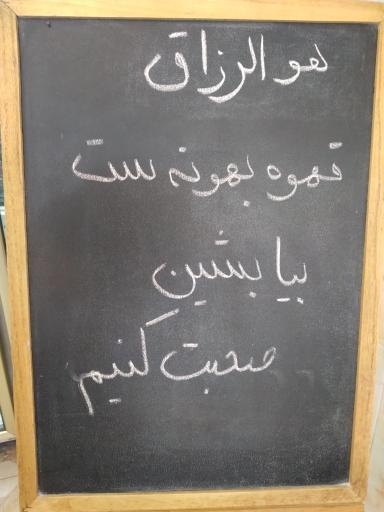 هو الرزاق
قهوه بهونه ست
بیا بشین
صحبت کنیم